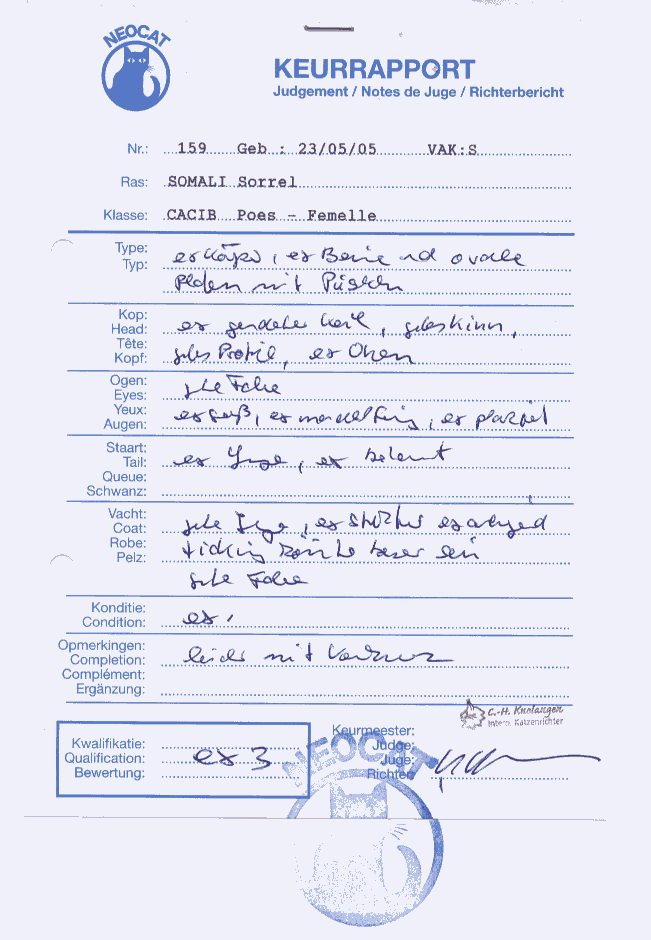 NEOCAT
KEURRAPPORT
Judgement / Notes de Juge / Richterbericht
Nr.: 159 Geb : 23/05/05 VAK:S
Ras: SOMALI Sorrel
Klasse: CACIB Poes - Femelle
Type:
Typ:
ex Körper, ex Beine und ovale
Pfoten mit
Kop:
Head:
Tête:
Kopf:
ex Keil, gutes Kinn,
gutes Profil, ex Ohren
Ogen:
Eyes:
Yeux:
Augen:
gute Farbe
ex groß, ex mandelförmig, ex plaziert
Staart:
Tail:
Queue:
Schwanz:
ex Länge, ex behaart
Vacht:
Coat:
Robe:
Pelz:
gute Länge, ex Struktur
ticking könnte besser sein
gute Farbe
Konditie:
Condition:
ex,
Opmerkingen:
Completion:
Complément:
Ergänzung:
leider mit
C.-H. Knolanger
Intern. Katzenrichter
Kwalifikatie:
Qualification:
Bewertung:
ex 3
Keurmeester:
Judge:
Juge:
Richter:
NEOCAT